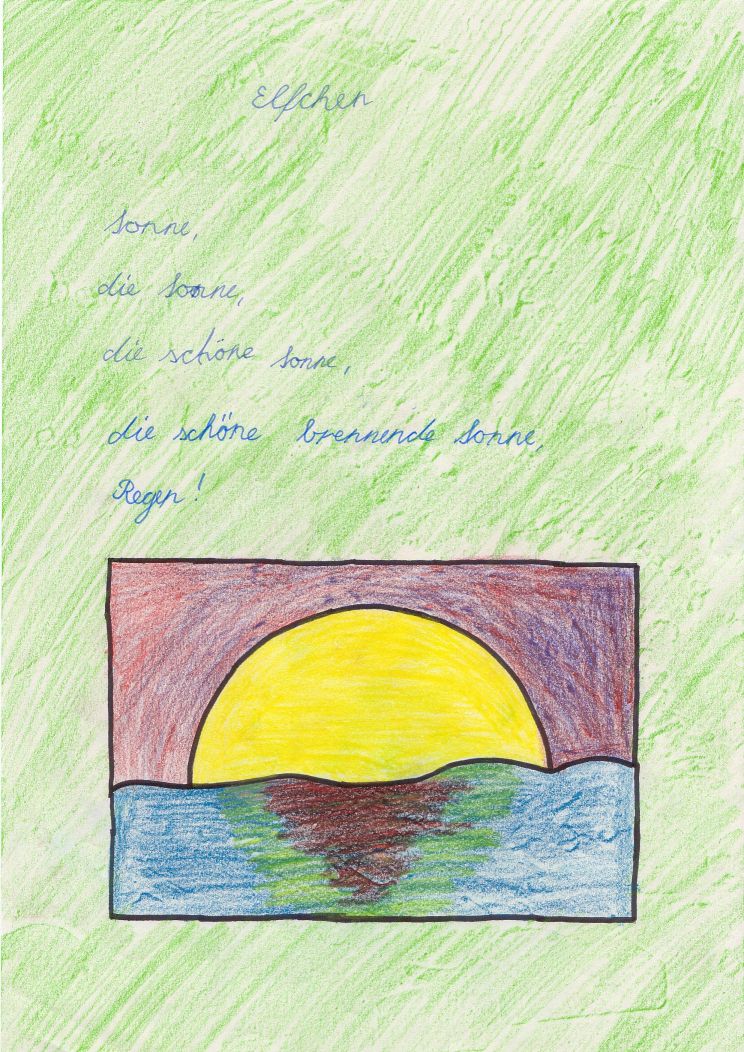 Elfchen
Sonne,
die Sonne,
die schöne Sonne,
die schöne brennende Sonne,
Regen!